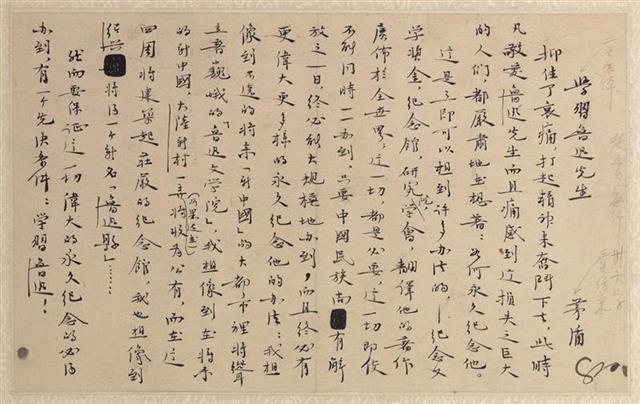 學習魯迅先生
茅盾
抑住了哀痛，打起精神來奋鬥下去，此時
凡敬爱魯迅先生而且痛感到这損失之巨大
的人们，都嚴肅地在想着：如何永久紀念他。
这是立即可以想到许多办法的，——纪念文
学奖金，纪念館，研究院，学會，翻译他的著作
廣佈於全世界，这一切，都是必要，这一切即使
不能同時一一办到，只要中國民族尚有解
放之一日，终必能大規模地办到，而且终必有
更偉大更多樣的永久纪念他的办法：我想
像到不远的将来「新中國」的大都市裡将聳
立着巍峨的「魯迅文学院」，我想像到在将来
的新中國，大陸新村一弄将收为公有，而在这
四周将建築起莊嚴的纪念館，我也想像到
绍兴将得个新名「魯迅縣」……
然而要保证这一切偉大的永久纪念的必得
办到，有一个先决条件：学習魯迅！